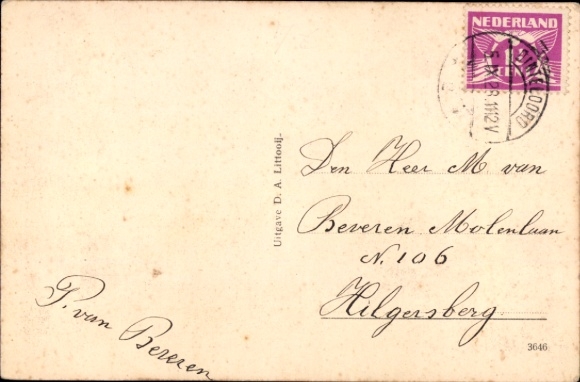 NEDERLAND
1½
DINTELOORD
28.1112V
Uitgave D. A. Littooij.
Den Heer M van
Beveren Molenlaan
N. 106
Hilgersberg
P. van Beveren
3646